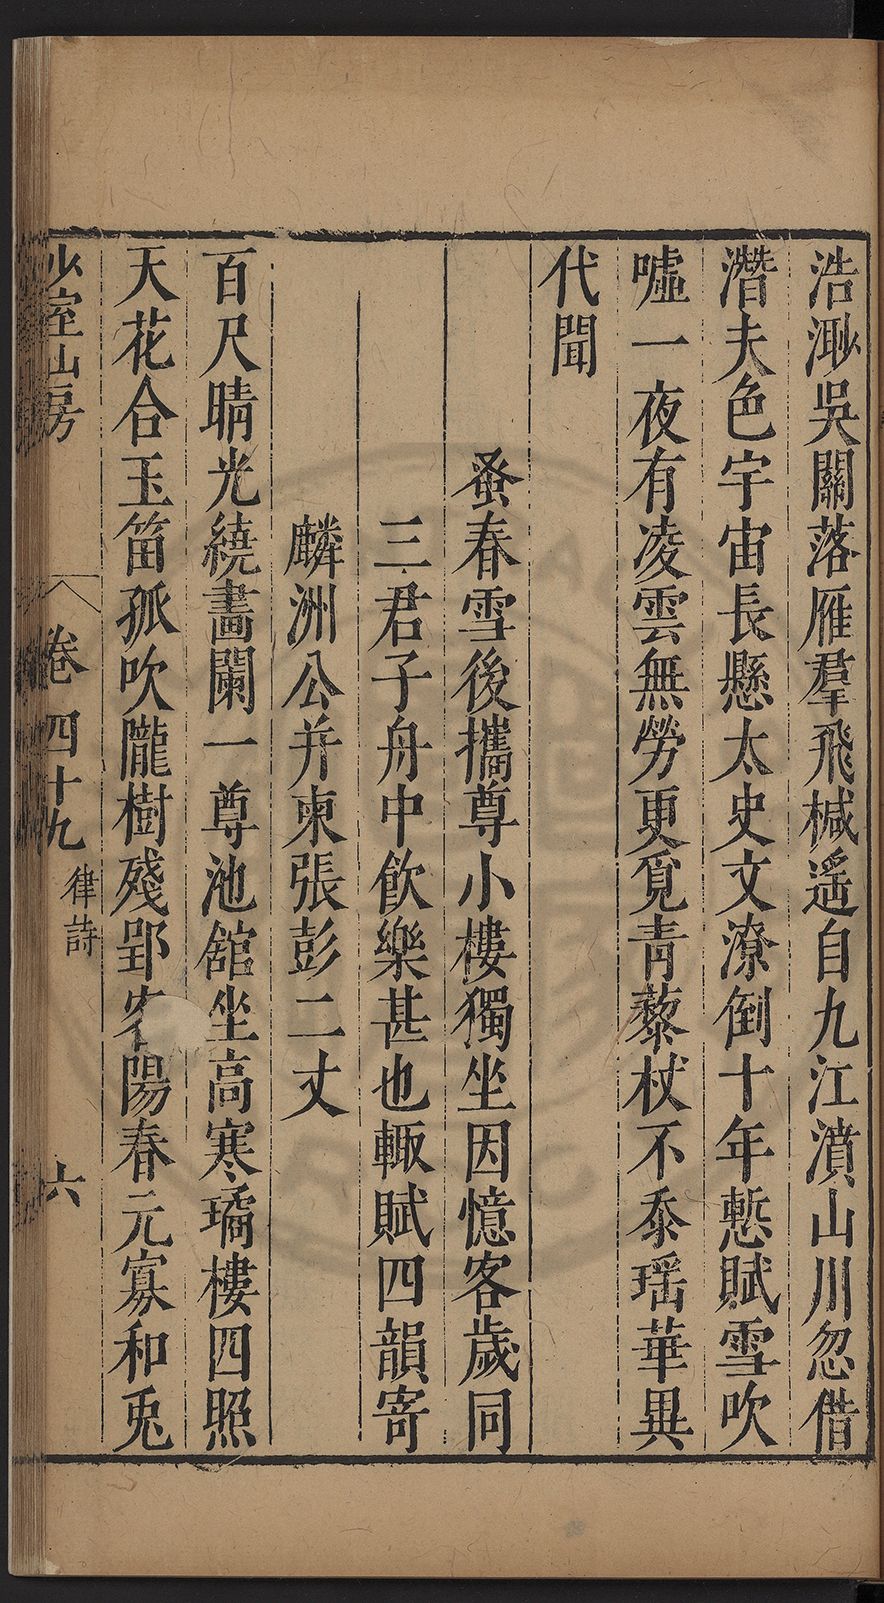 浩渺吳關落雁羣飛椷遥自九江濆山川忽借
濳夫色宇宙長懸太史文潦倒十年慙賦雪吹
噓一夜有凌雲無勞更覓青藜杖不忝瑶華異
代聞
蚤春雪後攜尊小樓獨坐因憶客歲同
三君子舟中飲樂甚也輙賦四韻寄
麟洲公并柬張彭二丈
百尺晴光繞畵闌一尊池舘坐高寒璚樓四照
天花合玉笛孤吹隴樹殘郢客陽春元寡和兎
少室山房 卷四十九 律詩 六